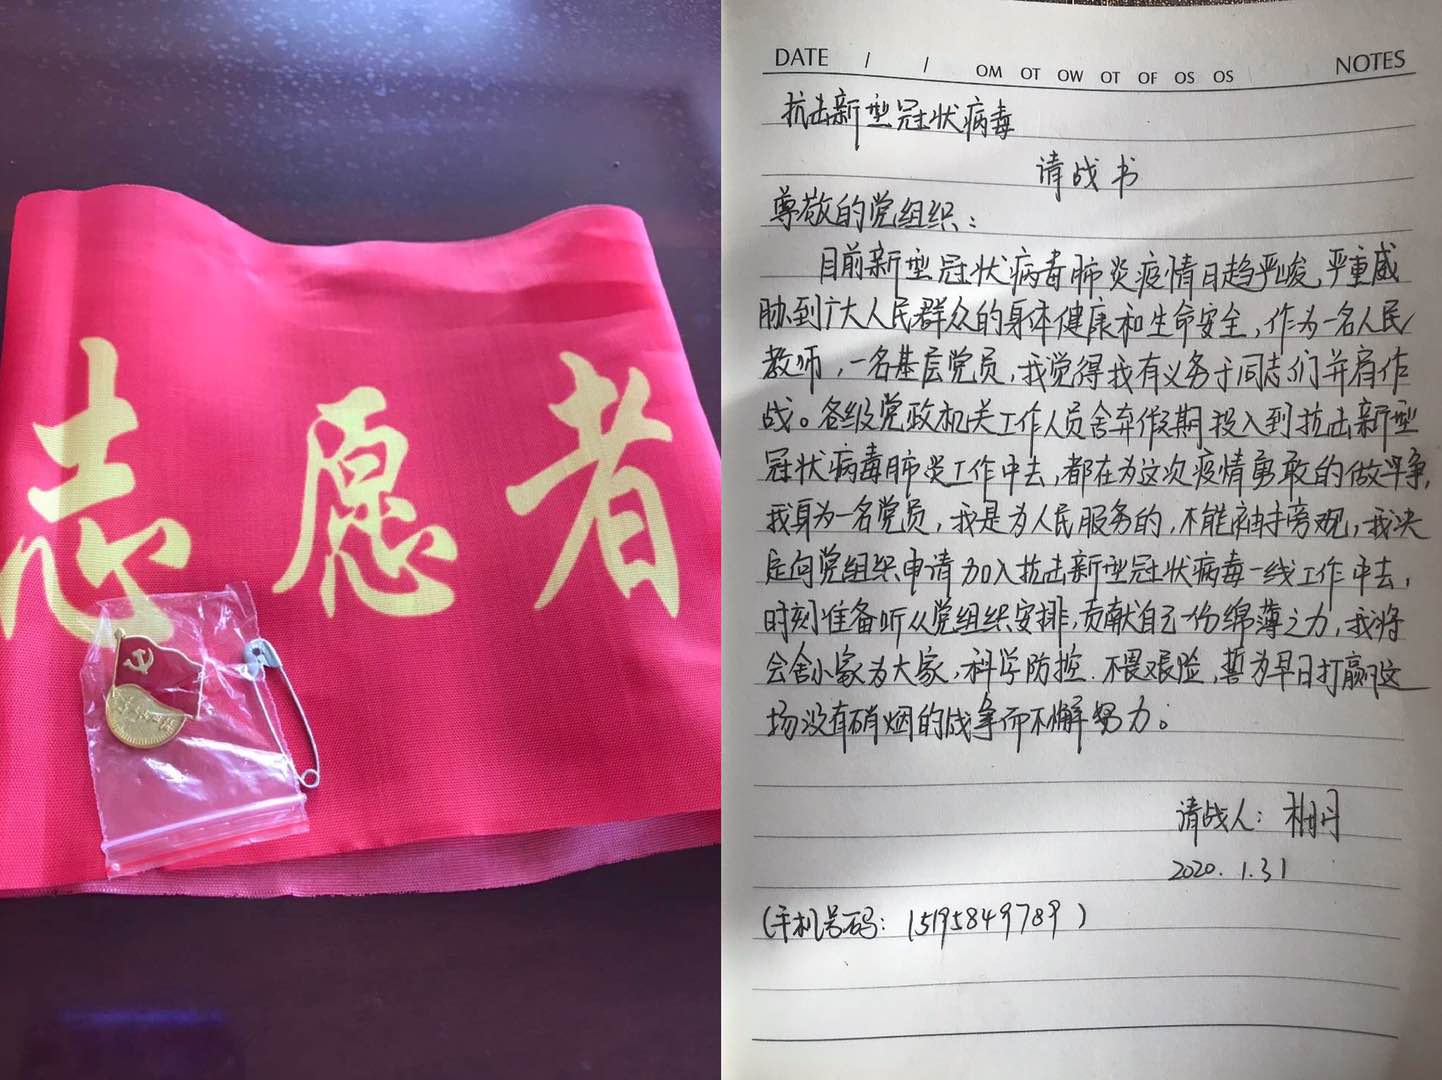 志愿者
DATE / / OM OT OW OT OF OS OS NOTES
抗击新型冠状病毒
请战书
尊敬的党组织：
目前新型冠状病毒肺炎疫情日趋严峻，严重威
胁到广大人民群众的身体健康和生命安全，作为一名人民
教师，一名基层党员，我觉得我有义务于同志们并肩作
战。各级党政机关工作人员舍弃假期投入到抗击新型
冠状病毒肺炎工作中去，都在为这次疫情勇敢的做斗争，
我身为一名党员，我是为人民服务的，不能袖手旁观，我决
定向党组织申请加入抗击新型冠状病毒一线工作中去，
时刻准备听从党组织安排，贡献自己一份绵薄之力，我将
会舍小家为大家，科学防控.不畏艰险，誓为早日打赢这
场没有硝烟的战争而不懈努力。
请战人：
2020.1.31
（手机号码：15195849789）